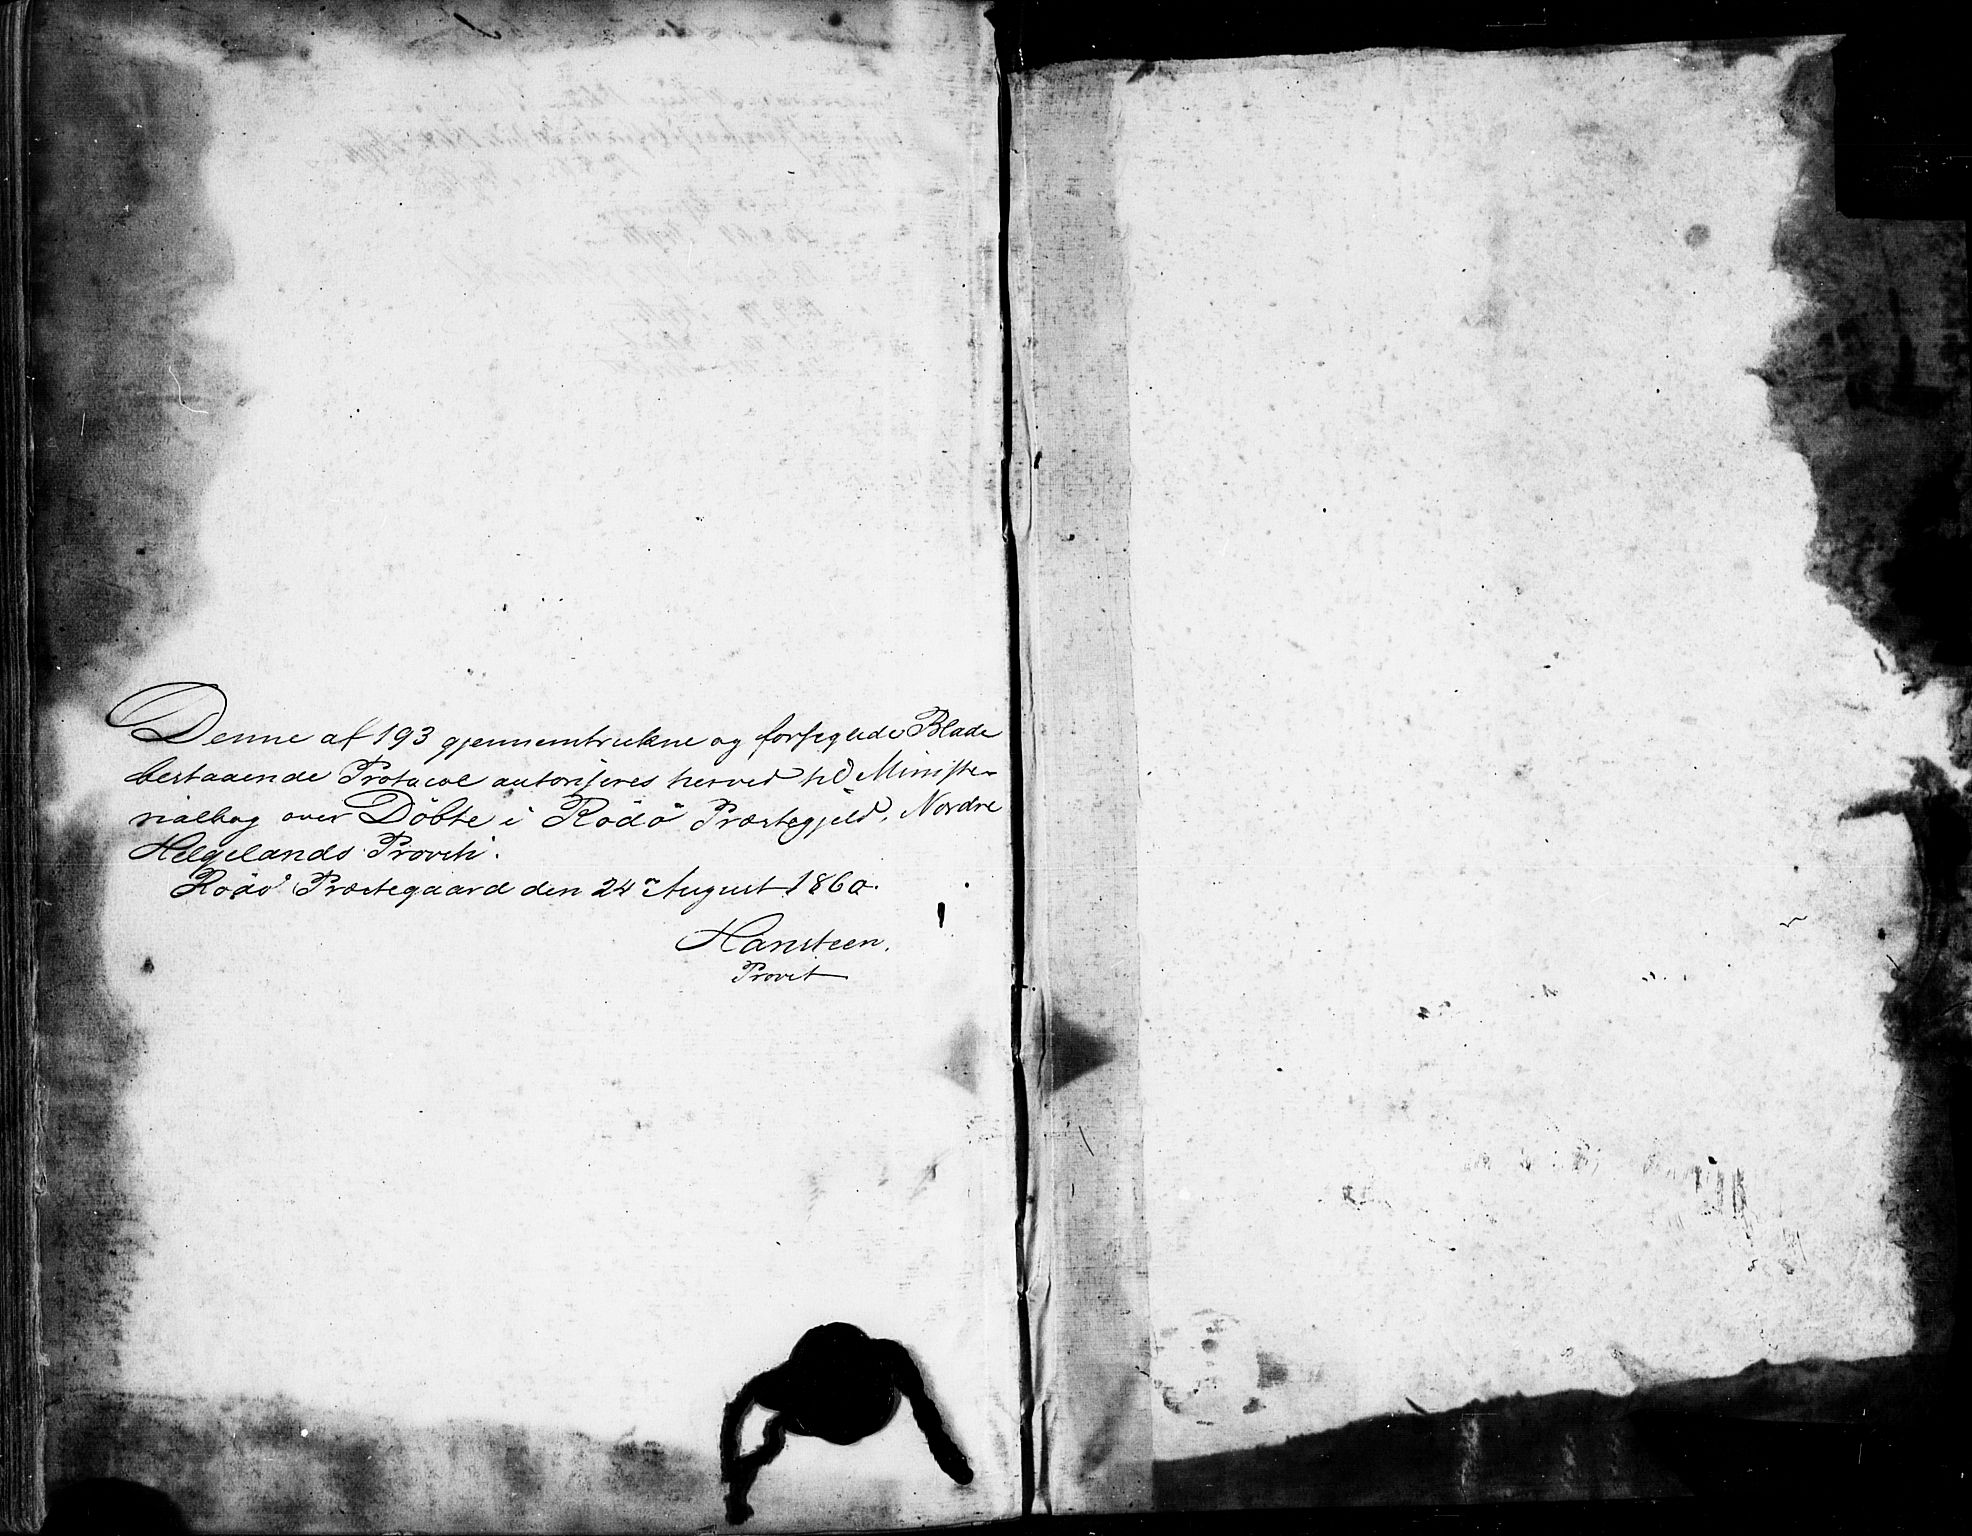 Denne af 193 gjennemtrukne og forseglede Blade
bestaaende Protocol autoriseres herved til Ministe-
rialbog over Döbte i Rödö Præstegjeld, Nordre
Helgelands Provsti.
Rödö Præstegaard den 24n August 1860.
Hansteen.
Provst